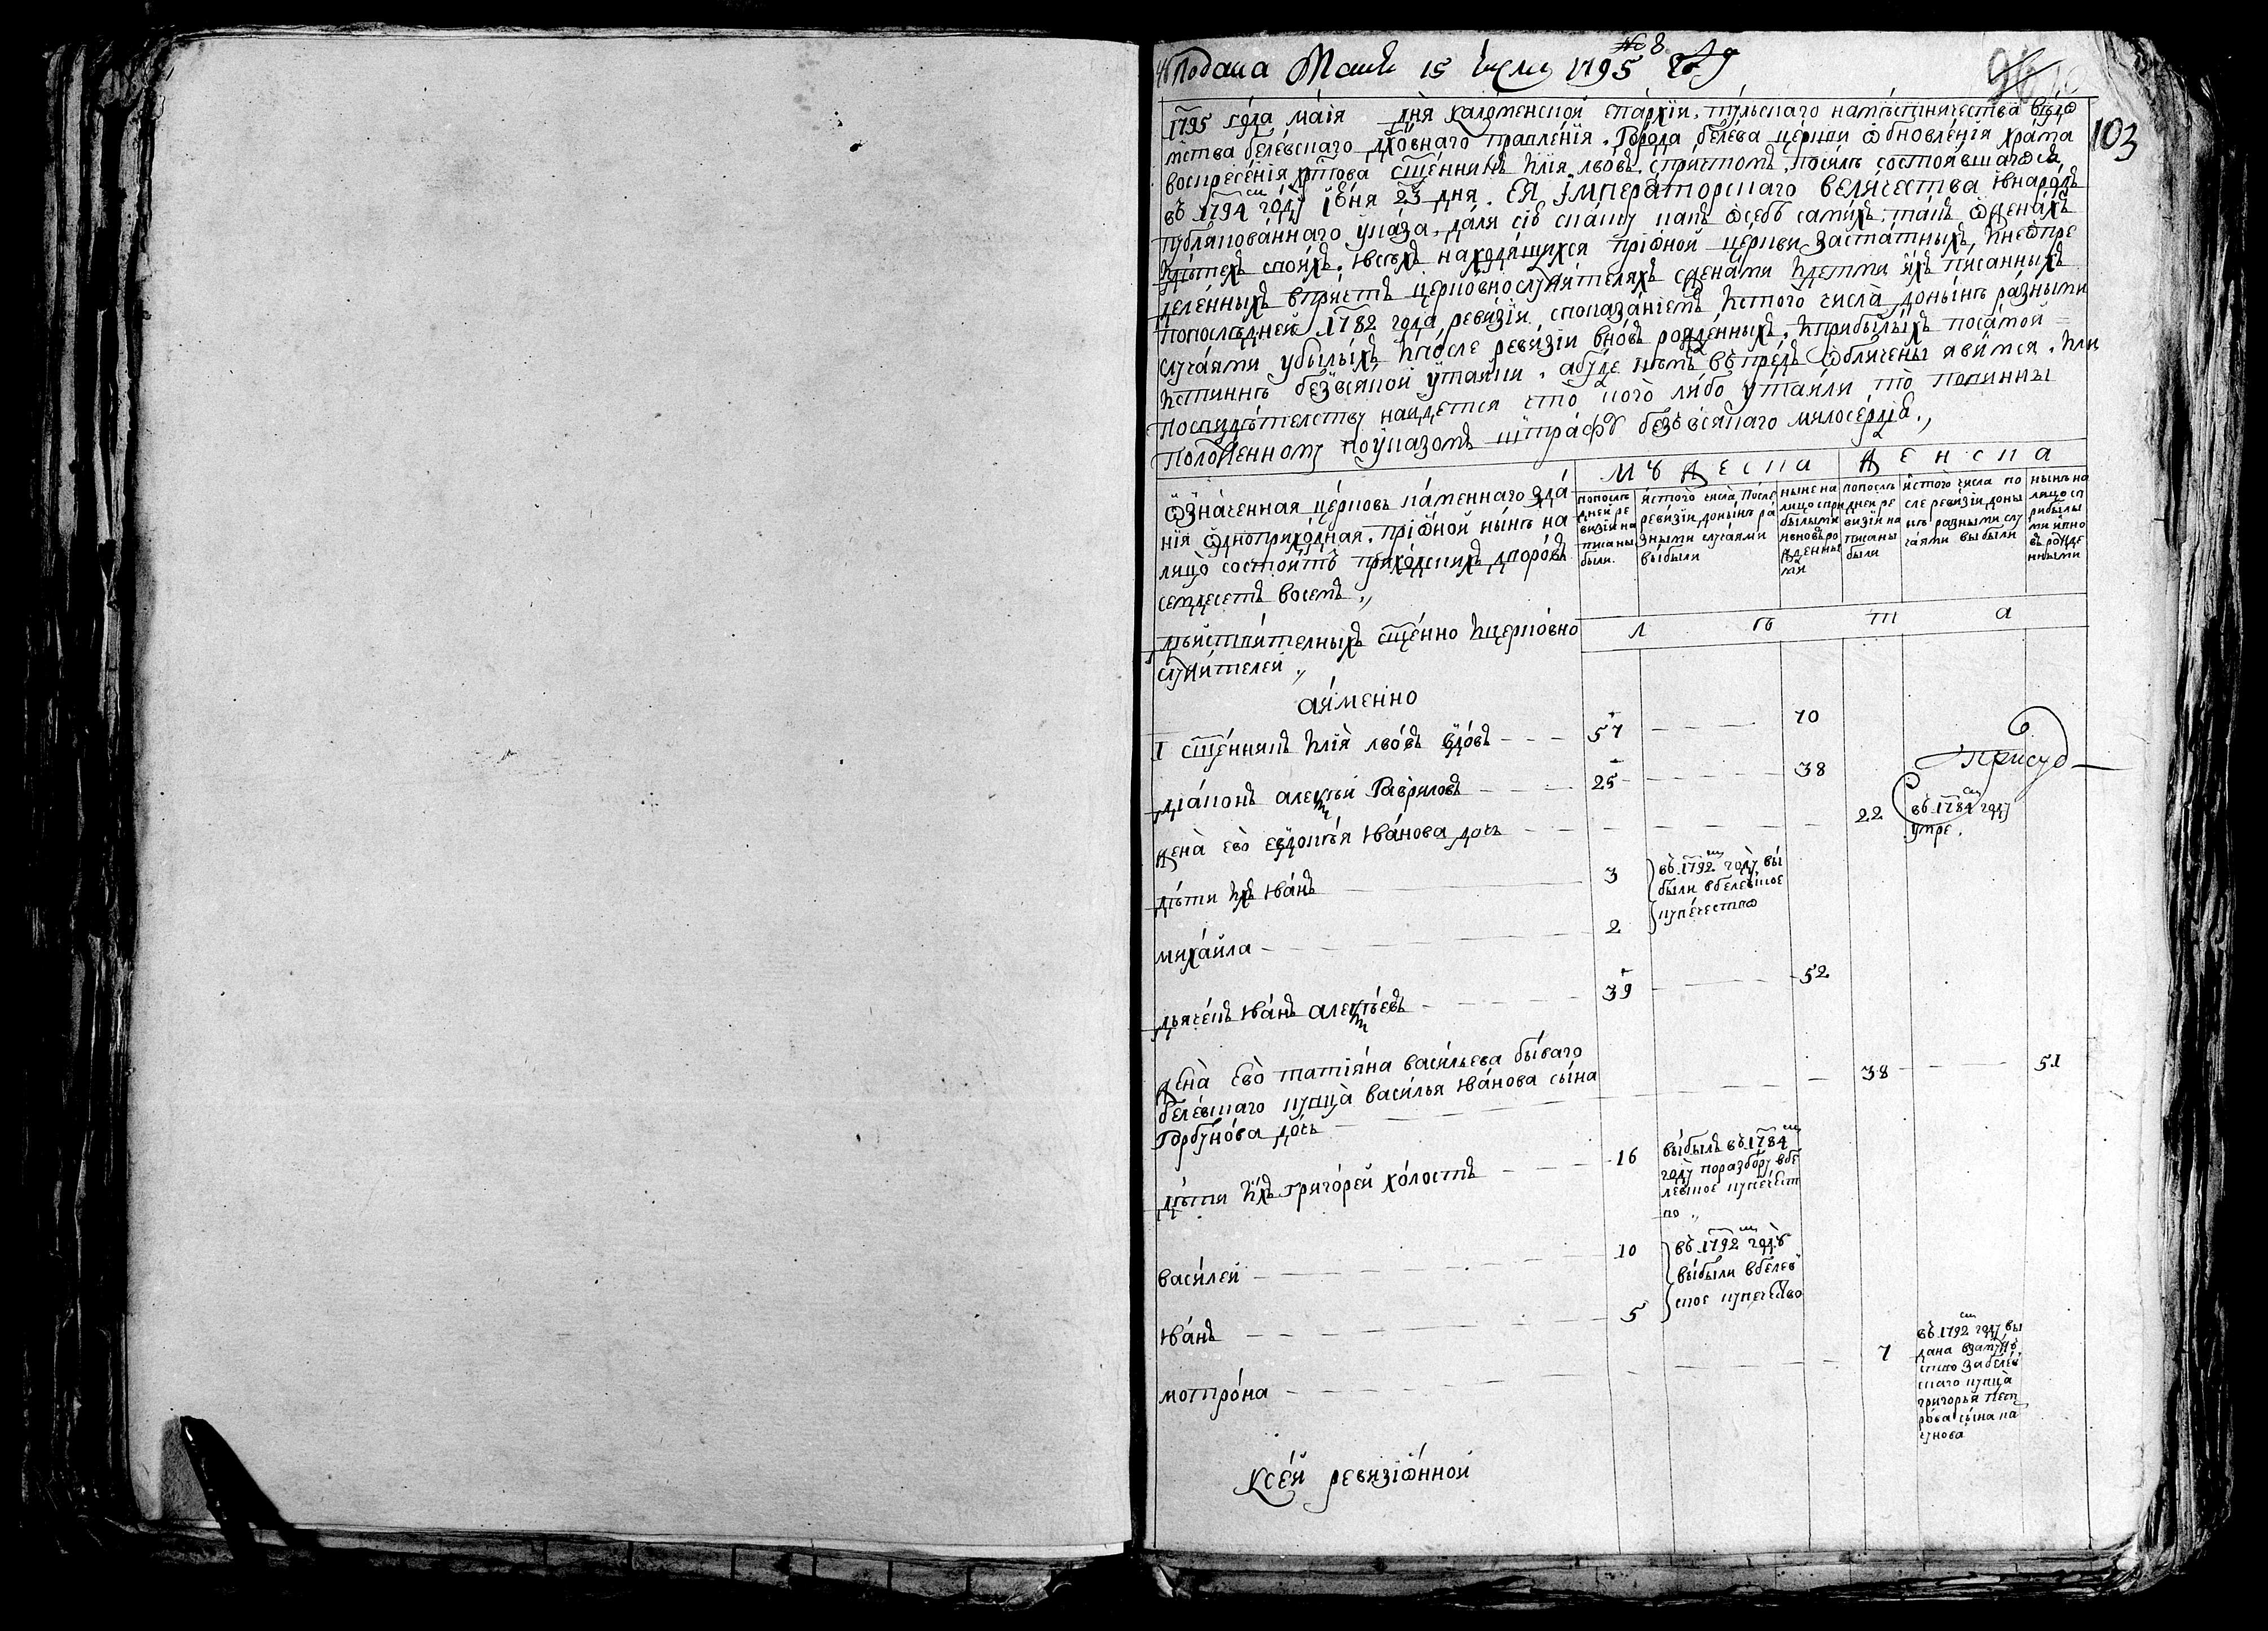 № 8
Подана Маия 15 числа 1795 году
96
103
1795 года маїя дня каломенской епархїи, тульскаго намѣстничества вѣдо
мства белевскаго дховнаго правленїя. Города белева церкви ѡбновленїя храма
воскресенїя хртова сщенникъ илїя львовъ, спричтомъ, посилѣ состоявшагося
въ 1794 м году іюня 23 дня. ЕЯ Імператорскаго величества івнародъ
публикованнаго указа, дали сію скаску какъ ѡсебѣ самихъ, такъ ѡженахъ
идѣтехъ своихъ, ивсѣхъ находящихся приѡной церкви застатныхъ, инеѡпре
деленныхъ впричтъ церковнослужителяхъ сженами идетми ихъ писанныхъ
попослѣдней 1782 года ревизїи споказанїемъ истого числа донынѣ разными
случаями убылыхъ ипосле ревизїи вновь рожденныхъ, иприбылыхъ посамой
истиннѣ безвсякой утайки, абуде кѣмъ впредь ѡбличены явимся, или
посвидѣтелству найдется что кого либо утаили то повинны
положенному поуказомъ штрафу безъ всякаго милосердїя.,
ѡзначенная церковь каменнаго зда
нїя ѡдноприходная, приѡной нынѣ на
лицо состоитъ приходскихъ дворовъ
семдесетъ восемь.,
мужеска
женска
попослѣ
дней ре
визїи на
писаны
были.
истого числа после
ревизїи донынѣ ра
зными случаями
выбыли
ныне на
лицо спри
былыми
ивновь ро
жденны
ми
попослѣ
дней ре
визїи на
писаны
были
истого числа по
сле ревизїи доны
нѣ разными слу
чаями выбыли
нынѣ на
лицо сп
рибылы
ми ивно
вь рожде
нными
дѣйствителныхъ сщенно ицерковно
служителей.,
л ѣ т а
аименно
I сщенникъ илїя львовъ вдовъ 57 70
дїаконъ алексѣй Гавриловъ 25 38
жена ево евдокѣя иванова дочь 22 въ 1784 м году
умре.
дѣти ихъ иванъ 3 въ 1792 м году вы
были вбелевское
купечество
михайла 2
дьячекъ иванъ алексѣевъ 39 52
жена ево татїяна васильева бываго
белевскаго купца василья иванова сына
Горбунова дочь 38 51
дѣти ихъ григорей холостъ 16 выбылъ въ 1784 м
году поразбору вбе
левское купечест
во.,
василей 10 въ 1792 м году
выбыли вбелев
ское купечество
иванъ 5
мотрона 7 въ 1792 м году вы
дана взамуже
ство забелев
скаго купца
григорья пет
рова сына
Ксей ревизїѡнной